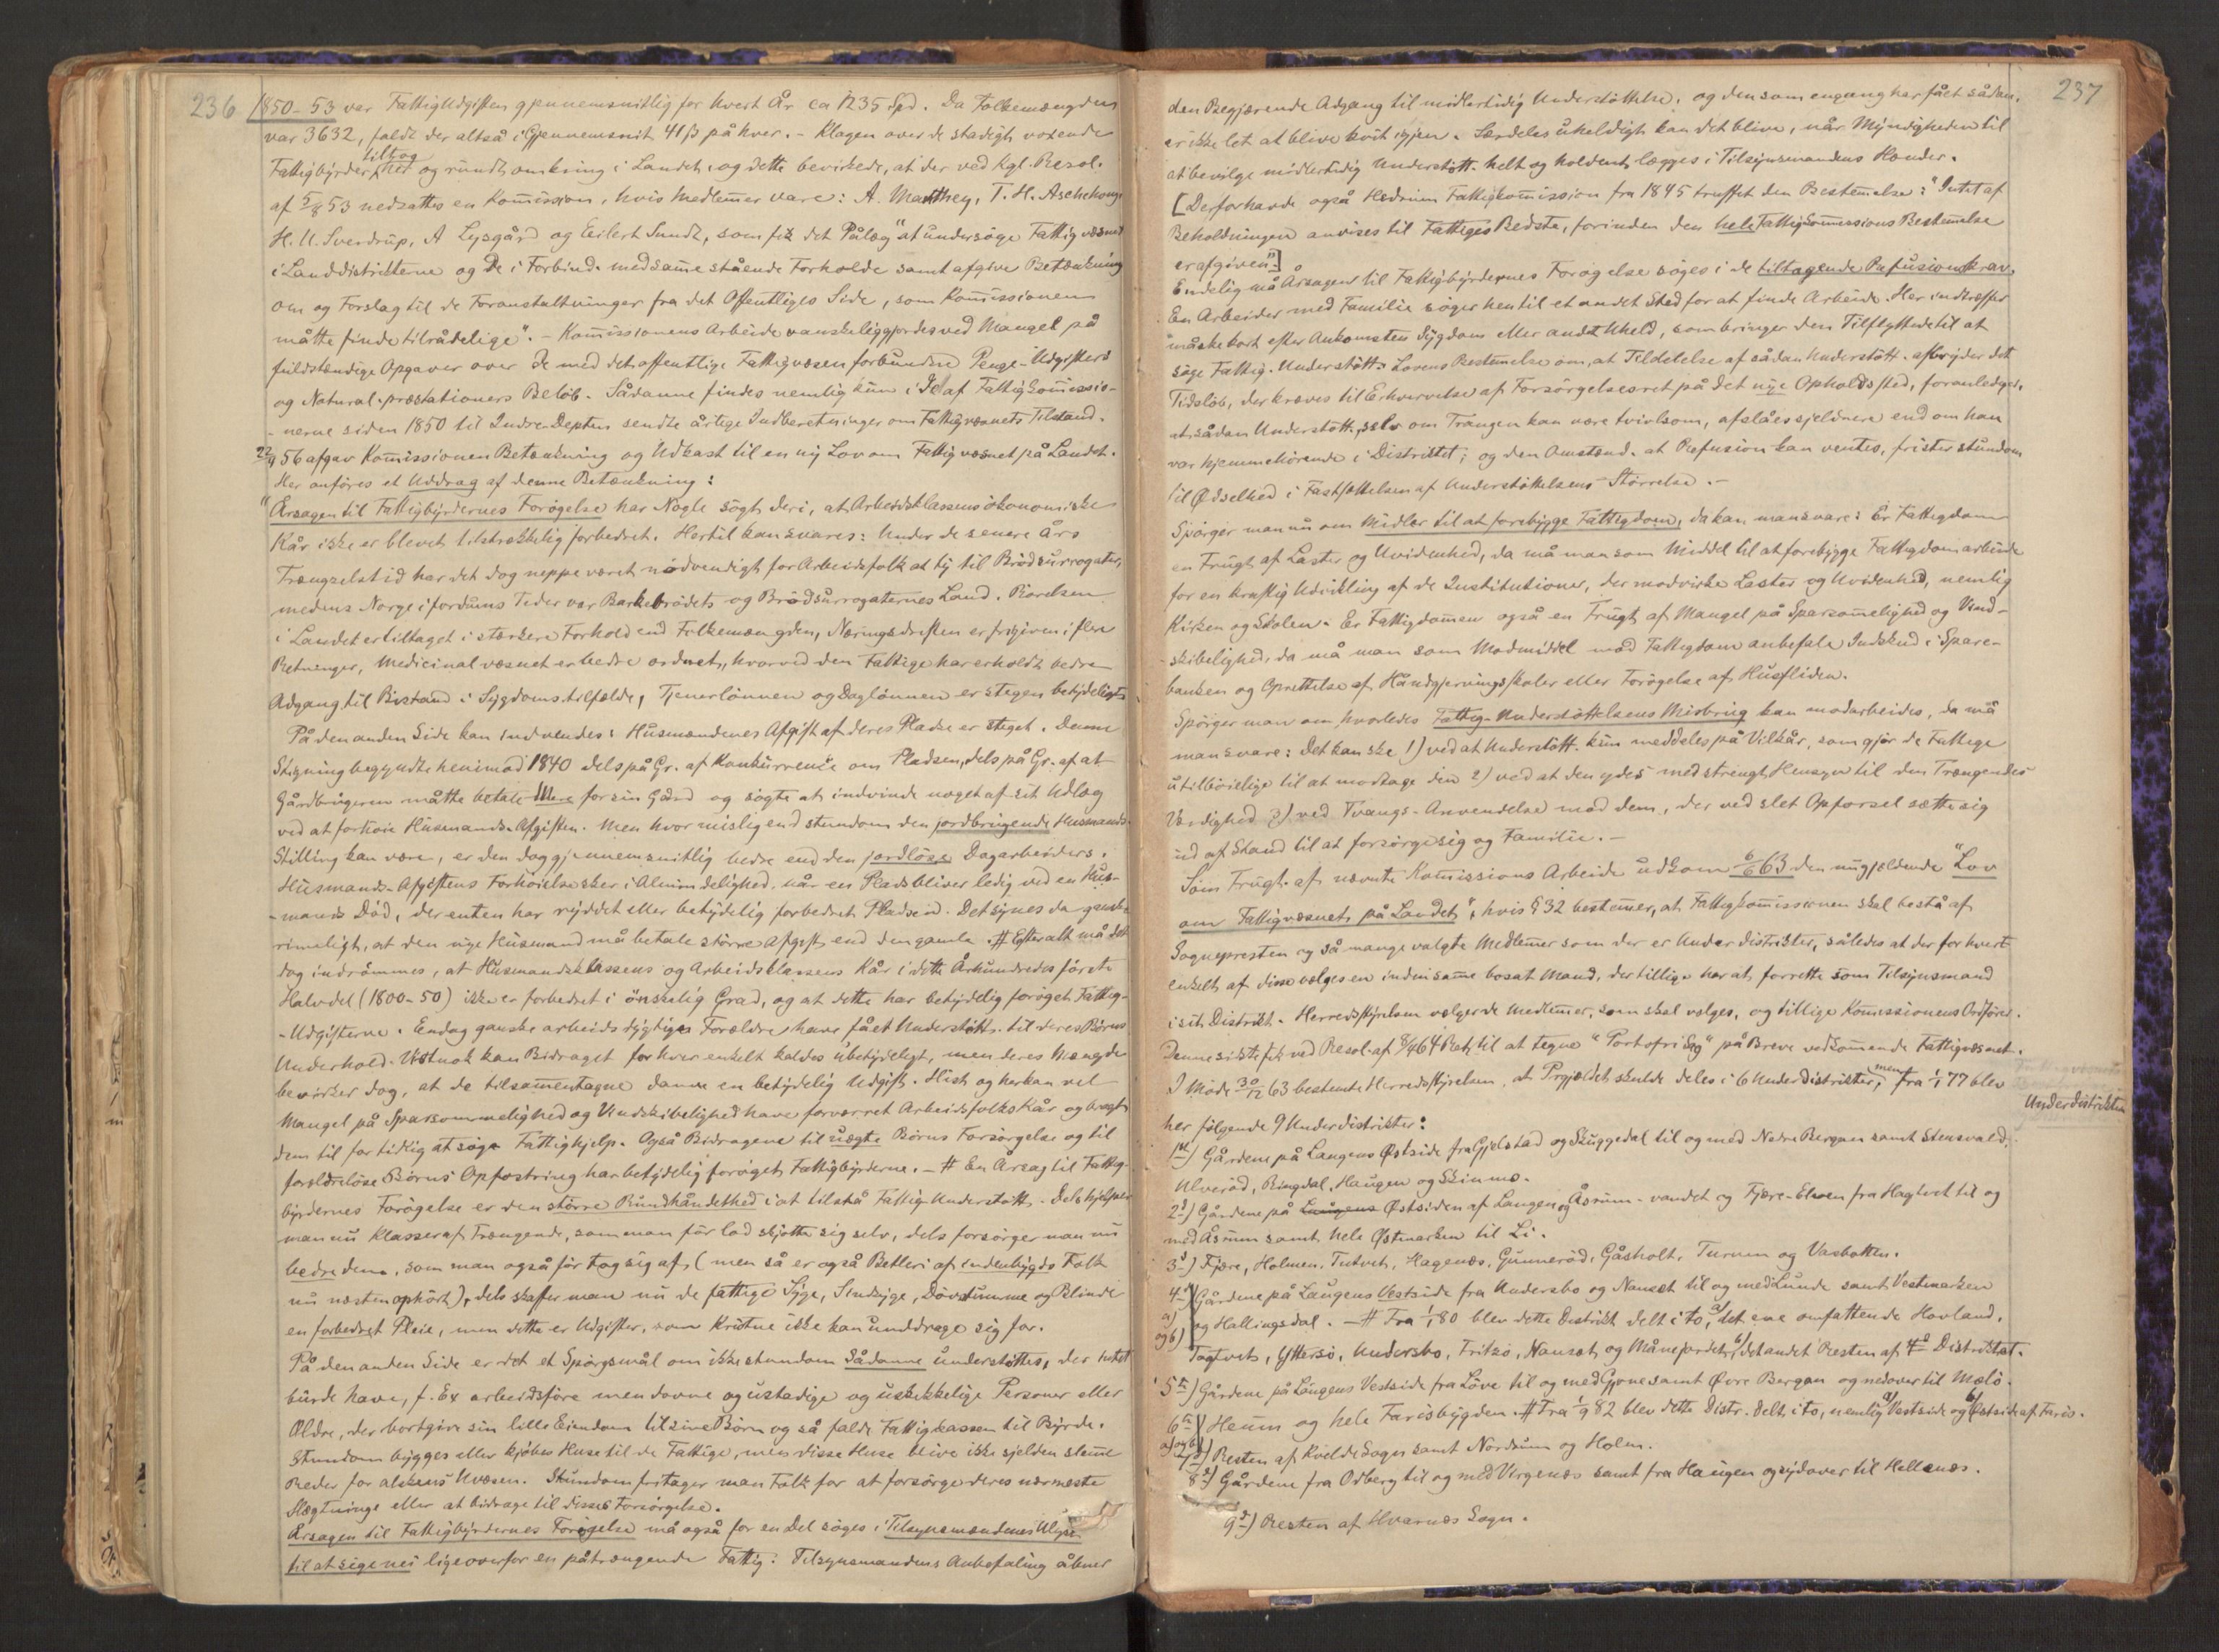 236
1850-53 var Fattigudgiften gjennemsnitlig for hvert År ca 1235 Spd. Da Folkemængden
var 3632, faldt der altså i Gjennemsnit 41 β på hver. - Klagen over de stadigt voxende
Fattigbyrder tiltog her og rundt omkring i Landet, og dette bevirkede, at der ved Kgl. Resol.
af 5/8 53 nedsattes en Komission, hvis Medlemer vare: A. Manthey, T. H. Aschehoug,
H. U. Sverdrup, A Lysgård og Eilert Sundt, som fik det Pålæg "at undersöge Fattigvæsnet
i Landdistrikterne og de i Forbind. med same stående Forholde samt afgive Betænkning
om og Forslag til de Foranstaltninger fra det Offentliges Side, som Komissionen
måtte finde tilrådelige". - Komissionens Arbeide vanskeliggjordes ved Mangel på
fuldstændige Opgaver over de med det offentlige Fattigvæsen forbundne Penge-Udgifters
og Natural-præstationers Belöb. Sådanne findes nemlig kun i de af Fattigkomissio-
-nerne siden 1850 til Indre-Depten sendte årlige Indberetninger om Fattigvæsnets Tilstand.
22/9 56 afgav Komissionen Betænkning og Udkast til en ny Lov om Fattigvæsnet på Landet.
Her anföres et Uddrag af denne Betænkning:
"Årsagen til Fattigbyrdernes Forögelse har Nogle sögt deri, at Arbeidsklassens ökonomiske
Kår ikke er blevet tilstrækkelig forbedret. Hertil kan svares: Under de senere Års
Trængselstid har det dog neppe været nödvendigt for Arbeidsfolk at ty til Brödsurrogater,
medens Norge i fordums Tider var Barkebrödets og Brödsurrogaternes Land. Rörelsen
i Landet er tiltaget i stærkere Forhold end Folkemængden, Næringsdriften er frigiven i flere
Retninger, Medicinalvæsnet er bedre ordnet, hvorved den Fattige har erholdt bedre
Adgang til Bistand i Sygdomstilfælde, Tjenerlönnen og Daglönnen er stegen betydeligt.
På den anden Side kan indvendes: Husmændenes Afgift af deres Pladse er steget. Denne
Stigning begyndte henimod 1840 dels på Gr. af Konkurrence om Pladsen, dels på Gr. af at
Gårdbrugeren måtte betale Mere for sin Gård og sögte at indvinde noget af sit Udlæg
ved at forhöie Husmands-Afgiften. Men hvor mislig end stundom den jordbrugende Husmands-
Stilling kan være, er den dog gjennemsnitlig bedre end den jordlöse Dagarbeiders.
Husmands-Afgiftens Forhöielse sker i Almindelighed, når en Plads bliver ledig ved en Hus-
-mands Död, der enten har ryddet eller betydelig forbedret Pladsen. Det synes da ganske
rimeligt, at den nye Husmand må betale större Afgift end den gamle. # Efter alt må det
dog indrömmes, at Husmandsklassens og Arbeidsklassens Kår i dette Århundredes förste
Halvdel (1800-50) ikke er forbedret i önskelig Grad, og at dette har betydelig foröget Fattig-
-Udgifterne. Endog ganske arbeidsdygtige Forældre have fået Understött. til deres Börns
Underhold. Vistnok kan Bidraget for hver enkelt kaldes ubetydeligt, men deres Mængde
bevirker dog, at de tilsamentagne danne en betydelig Udgift. Hist og her kan vel
Mangel på Sparsommelighed og Vindskibelighed have forværret Arbeidsfolks Kår og bragt
dem til for tidlig at söge Fattighjelp. Også Bidragene til uægte Börns Forsörgelse og til
forældrelöse Börns Opfostring har betydelig foröget Fattigbyrderne. - # En Årsag til Fattig-
byrdernes Forögelse er den större Rundhåndethed i at tilstå Fattig-Understött. Dels hjelper
man nu Klasser af Trængende, som man för lod skjötte sig selv, dels forsörger man nu
bedre dem, som man også för tog sig af, (men så er også Betleri af indenbygds Folk
nu næsten ophört), dels skaffer man nu de fattige Syge, Sindsyge, Dövstumme og Blinde
en forbedret Pleie, men dette er Udgifter, som Kristne ikke kan unddrage sig for.
På den anden Side er det et Spörgsmål om ikke stundom Sådanne understöttes, der intet
burde have, f. Ex arbeidsföre men dovne og ustadige og uskikkelige Personer eller
Oldre, der bortgive sin lille Eiendom til sine Börn og så falde Fattigkassen til Byrde.
Stundom bygges eller kjöbes Huse til de Fattige, men disse Huse blive ikke sjelden sleme
Reder for alskens Uvæsen. Stundom fritager man Folk for at forsörge deres nærmeste
Slægtninge eller at bidrage til disses Forsörgelse.
Årsagen til Fattigbyrdernes Forögelse må også for en Del söges i Tilsynsmændenes Ulyst
til at sige nei ligeoverfor en påtrængende Fattig. Tilsynsmandens Anbefaling åbner
237
den Begjærende Adgang til midlertidig Understöttelse, og den som engang har fået sådan,
er ikke let at blive kvit igjen. Særdeles uheldigt kan det blive, når Myndigheden til
at bevilge midlertidig Understött. helt og holdent lægges i Tilsynsmandens Hænder.
[Derfor havde også Hedrum Fattigkomission fra 1845 truffet den Bestemelse: "Intet af
Beholdningen anvises til Fattiges Bedste, forinden den hele Fattigkomissions Bestemelse
er afgiven".]
Endelig må Årsagen til Fattigbyrdernes Forögelse söges i de tiltagende Refusionskrav.
En Arbeider med Familie söger hen til et andet Sted for at finde Arbeide. Her indtræffer
måske kort efter Ankomsten Sygdom eller andet Uheld, som bringer den Tilflyttede til at
söge Fattig-Understött. Lovens Bestemelse om, at Tildelelse af sådan Understött. afbryder det
Tidslöb, der kræves til Erhvervelse af Forsörgelsesret på det nye Opholdssted, foranlediger,
at sådan Understött., selv om Trangen kan være tvivlsom, afslåes sjeldnere end om han
var hjemmehörende i Distriktet; og den Omstænd. at Refusion kan ventes, frister stundom
til Ødselhed i Fastsættelsen af Understöttelsens Störrelse. -
Spörger man nu om Midler til at forebygge Fattigdom, da kan man svare: Er Fattigdom
en Frugt af Laster og Uvidenhed, da må man som Middel til at forebygge Fattigdom arbeide
for en kraftig Udvikling af de Institutioner, der modvirke Laster og Uvidenhed, nemlig
Kirken og Skolen. Er Fattigdomen også en Frugt af Mangel på Sparsomelighed og Vind-
-skibelighed, da må man som Modmiddel mod Fattigdom anbefale Indskud i Spare-
banken og Oprettelse af Håndgjerningsskoler eller Forögelse af Husfliden.
Spörger man om hvorledes Fattig-Understöttelsens Misbrug kan modarbeides, da må
man svare: Det kan ske 1) ved at Understött. kun meddeles på Vilkår, som gjör de Fattige
utilböielige til at modtage den 2) ved at den ydes med strengt Hensyn til den Trængendes
Værdighed 3) ved Tvangs-Anvendelse mod dem, der ved slet Opførsel sætte sig
ud af Stand til at forsörge sig og Familie. -
Som Frugt af nævnte Komissions Arbeide udkom 6/6 63 den nugjældende "Lov
om Fattigvæsnet på Landet", hvis § 32 bestemer, at Fattigkomissionen skal bestå af
Sognepresten og så mange valgte Medlemer som der er Underdistrikter, således at der for hvert
enkelt af disse vælges en inden same bosat Mand, der tillige har at forrette som Tilsynsmand
i sit Distrikt. Herredsstyrelsen vælger de Medlemer, som skal vælges, og tillige Komissionens Ordförer.
Denne sidste fik ved Resol. af 8/4 64 Ret til at tegne "Portofri Sag" på Breve vedkomende Fattigvæsnet.
I Möde 30/12 63 bestemte Herredsstyrelsen, at Prgjældet skulde deles i 6 Underdistrikter, men fra 1/1 77 blev
Underdistrikter
her fölgende 9 Underdistrikter:
1st) Gårdene på Laugens Østside fra Gjelstad og Skuggedal til og med Nedre Bergan samt Stensvald,
Ulveröd, Ringdal, Haugen og Skinmo.
2d) Gårdene på Laugens Østsiden af Laugen og Åsrum-vandet og Fjære-Elven fra Hagtvet til og
med Åsrum samt hele Østmarken til Li.
3d) Fjære, Holmen, Tutvet, Hagenæs, Gunneröd, Gåsholt, Turum og Vasbotten.
4d) Gårdene på Laugens Vestside fra Undersbo og Nanset til og med Lunde samt Vestmarken
a) og b) og Hallingsdal. - # Fra 1/1 80 blev dette Distrikt delt i to, a) det ene omfattende Hovland,
Tagtvet, Yttersö, Undersbo, Fritzö, Nanset og Månejordet, b) det andet Resten af 4d Distriktet.
5te) Gårdene på Laugens Vestside fra Löve til og med Gjone samt Øvre Bergan og nedover til Mælö.
6te) Heum og hele Farisbygden. # Fra 1/9 82 blev dette Distr. delt i to, nemlig a) Vestside og b) Østside af Faris.
a) og b)
7d) Resten af Kvelde Sogn samt Nordrum og Holm.
8d) Gårdene fra Odberg til og med Vergenæs samt fra Haugen og sydover til Hellenæs.
9d) Resten af Hvarnæs Sogn.